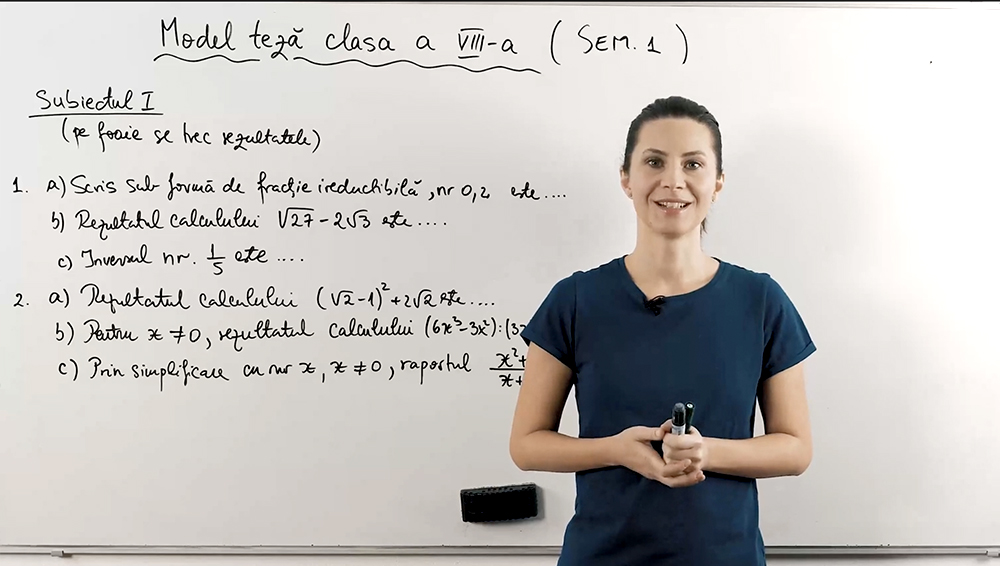 Model teză clasa a VIII-a (SEM. 1)
Subiectul I
(pe foaie se trec rezultatele)
1. a) Scris sub formă de fracție ireductibilă, nr 0,2 este ....
b) Rezultatul calculului √27 - 2√3 este ....
c) Inversul nr. 1/5 este ....
2. a) Rezultatul calculului (√2-1)² + 2√2 este ....
b) Pentru x ≠ 0, rezultatul calculului (6x³-3x²):(3
c) Prin simplificare cu nr x, x ≠ 0, raportul x²+ / x+